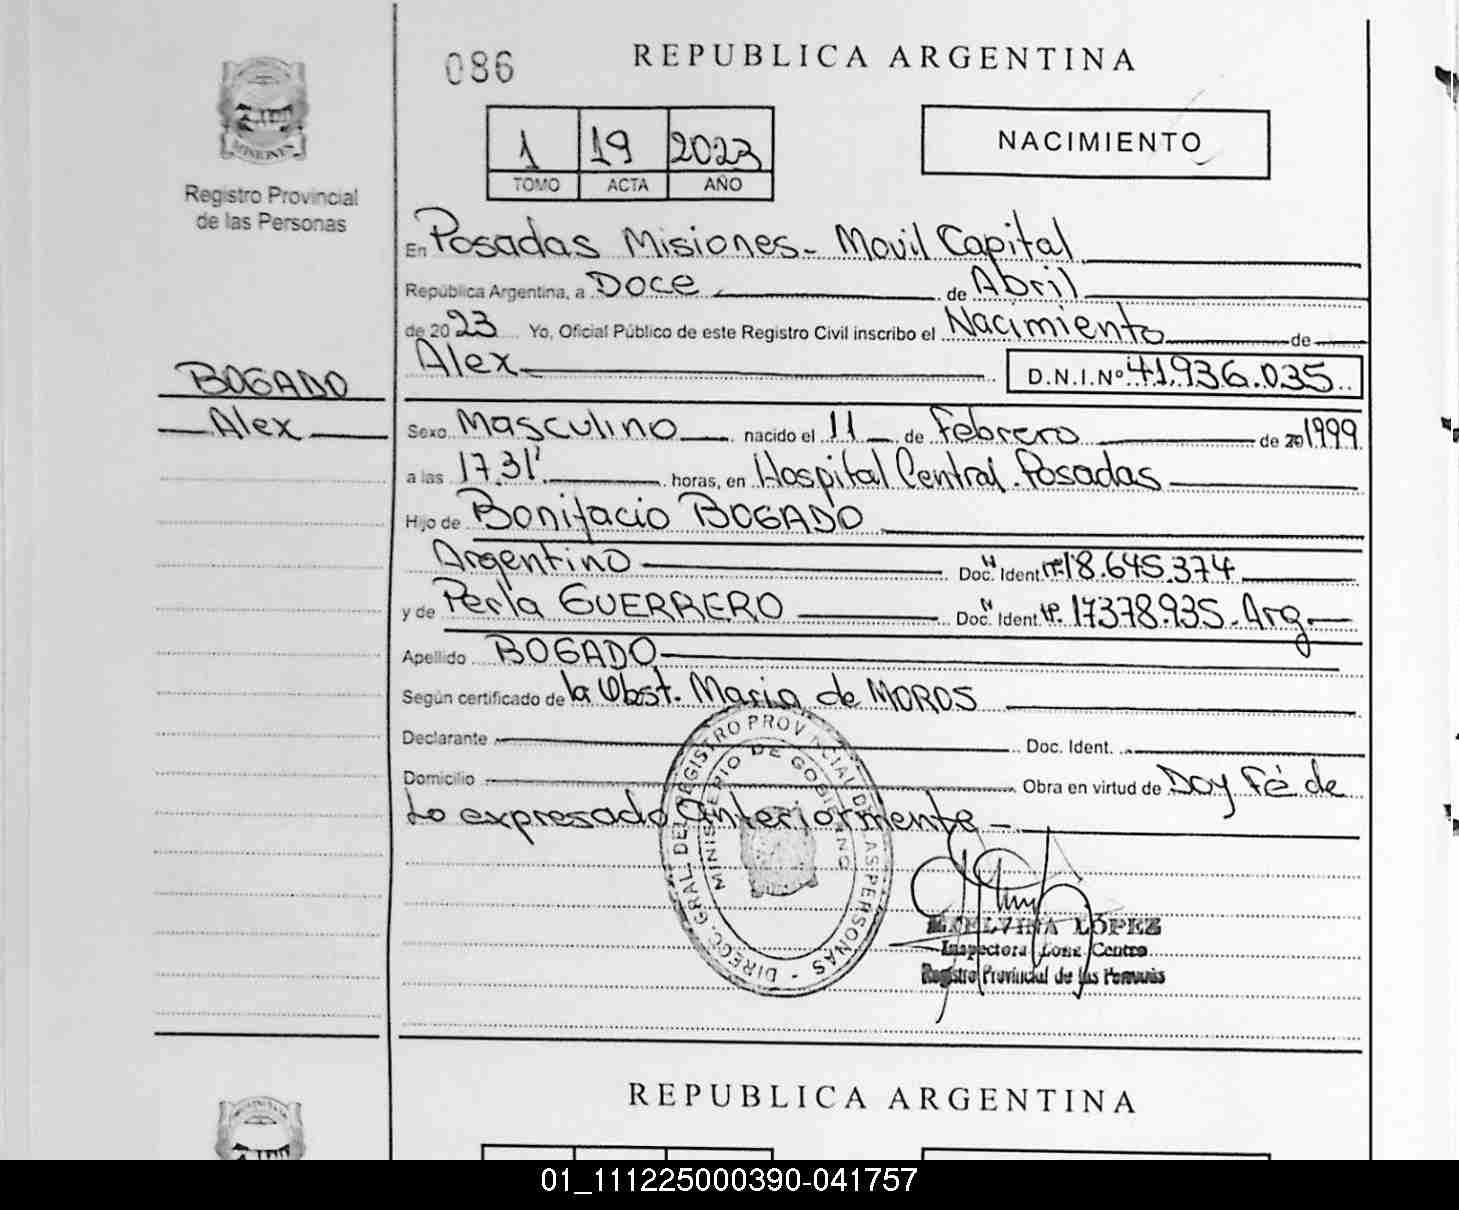 086
REPUBLICA ARGENTINA
MISIONES
Registro Provincial
de las Personas
1 19 2023
TOMO ACTA AÑO
NACIMIENTO
En Posadas Misiones- Movil Capital
República Argentina, a Doce de Abril
de 2023 Yo, Oficial Público de este Registro Civil inscribo el Nacimiento de
Alex D.N.I.Nº 41.936.035
BOGADO
Alex
Sexo Masculino nacido el 11 de Febrero de 20 1999
a las 17.31' horas, en Hospital Central. Posadas
Hijo de Bonifacio BOGADO
Argentino Doc. Ident. Nº 18.645.374
y de Perla GUERRERO Doc. Ident. Nº 17378.935. Arg
Apellido BOGADO
Según certificado de la Obst. Maria de MOROS
Declarante Doc. Ident.
Domicilio Obra en virtud de Doy Fé de
Lo expresado Anteriormente -
DIRECC. GRAL. DEL REGISTRO PROVINCIAL DE LAS PERSONAS -
MINISTERIO DE GOBIERNO
ETELVINA LÓPEZ
Inspectora Zona Centro
Registro Provincial de las Personas
REPUBLICA ARGENTINA
01_111225000390-041757